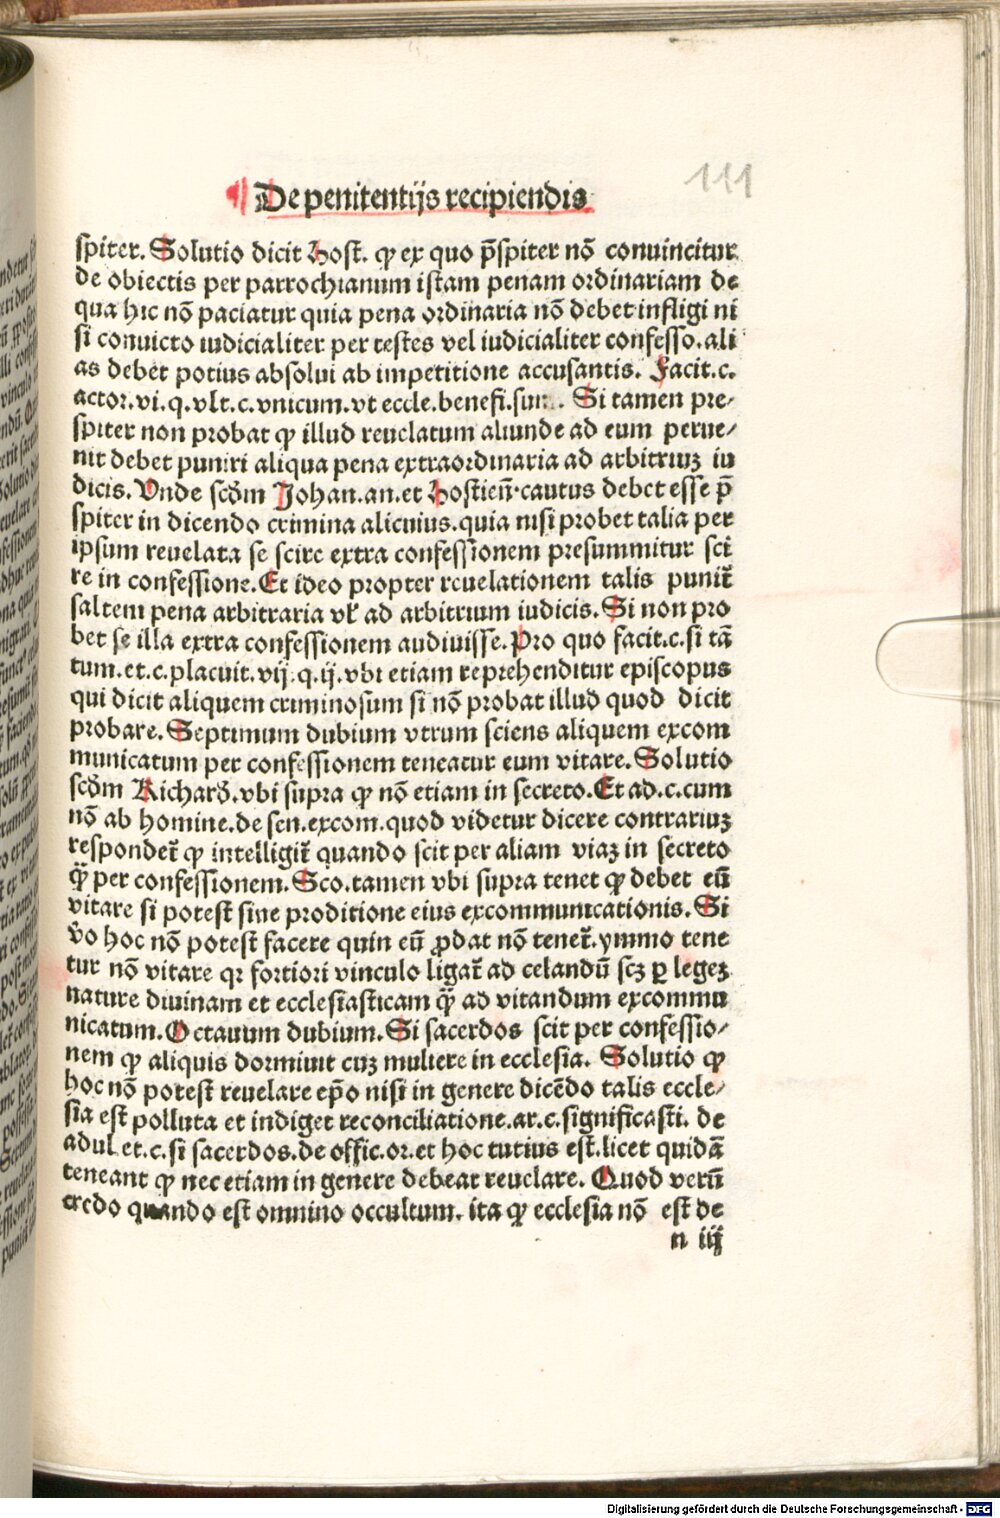 De penitentijs recipiendis
111
spiter. Solutio dicit Host. ꝙ ex quo p̄spiter nō conuincitur
de obiectis per parrochianum istam penam ordinariam de
qua hic nō paciatur quia pena ordinaria nō debet infligi ni
si conuicto iudicialiter per testes vel iudicialiter confesso. ali
as debet potius absolui ab impetitione accusantis. Facit.c.
actor.vi.q.vlt.c.vnicum.vt eccle.benefi. Si tamen pre⸗
spiter non probat ꝙ illud reuelatum aliunde ad eum perue⸗
nit debet puniri aliqua pena extraordinaria ad arbitriuꝫ iu
dicis. Vnde scd̄m Johan.an.et Hostien̄.cautus debet esse p̄
spiter in dicendo crimina alicuius.quia nisi probet talia per
ipsum reuelata se scire extra confessionem presummitur sci
re in confessione. Et ideo propter reuelationem talis punit̄
saltem pena arbitraria vl̓ ad arbitrium iudicis. Si non pro
bet se illa extra confessionem audiuisse. Pro quo facit.c.si tā
tum.et.c.placuit.vij.q.ij.vbi etiam reprehenditur episcopus
qui dicit aliquem criminosum si nō probat illud quod dicit
probare. Septimum dubium vtrum sciens aliquem excom
municatum per confessionem teneatur eum vitare. Solutio
scd̄m Richard̄.vbi supra ꝙ nō etiam in secreto. Et ad.c.cum
nō ab homine.de sen.excom.quod videtur dicere contrariuꝫ
respondet̄ ꝙ intelligit̄ quando scit per aliam viaꝫ in secreto
q̄ꝫ per confessionem. Sco.tamen vbi supra tenet ꝙ debet eū
vitare si potest sine proditione eius excommunicationis. Si
v̄o hoc nō potest facere quin eū ꝓdat nō tenet̄.ymmo tene
tur nō vitare qr fortiori vinculo ligat̄ ad celandū scꝫ ꝑ legeꝫ
nature diuinam et ecclesiasticam q̄ꝫ ad vitandum excommu
nicatum. Octauum dubium. Si sacerdos scit per confessio⸗
nem ꝙ aliquis dormiuit cuꝫ muliere in ecclesia. Solutio ꝙ
hoc nō potest reuelare ep̄o nisi in genere dicēdo talis eccle⸗
sia est polluta et indiget reconciliatione.ar.c.significasti. de
adul.et.c.si sacerdos.de offic.or.et hoc tutius est.licet quidā
teneant ꝙ nec etiam in genere debeat reuelare. Quod verū
credo quando est omnino occultum. ita ꝙ ecclesia nō est de
n iij
Digitalisierung gefördert durch die Deutsche Forschungsgemeinschaft - DFG